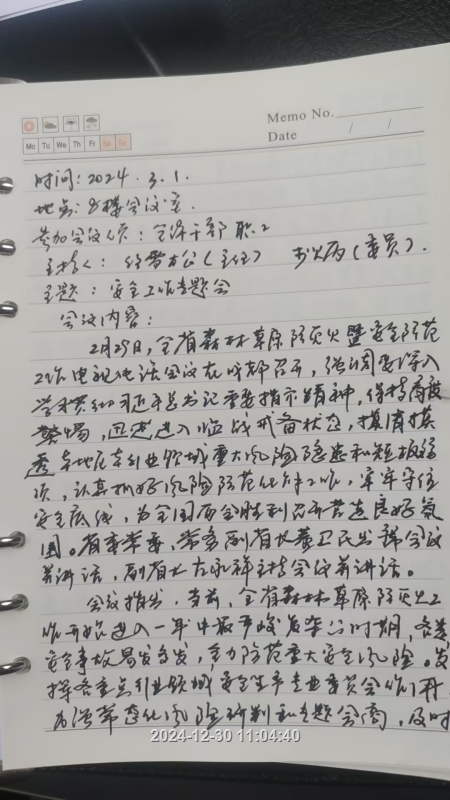 Memo No.
Date / /
Mo Tu We Th Fr Sa Su
时间：2024.3.1.
地点：会议室
参加会议人员：全体干部职工
主持人：（主任） （委员）.
主题：安全工作专题会
会议内容：
2月29日，全省森林草原防灭火暨安全防范
工作电视电话会议在成都召开，强调要深入
学习贯彻习近平总书记重要指示精神，保持高度
警惕，迅速进入临战戒备状态，摸清摸
透各地区各行业领域重大风险隐患和短板弱
项，认真抓好风险防范化解工作，牢牢守住
安全底线，为全国两会胜利召开营造良好氛
围。省委常委，常务副省长董卫民出席会议
并讲话，副省长左永祥主持会议并讲话。
会议指出，当前，全省森林草原防灭火工
作开始进入一年中最严峻复杂的时期，各类
安全事故易发多发，全力防范重大安全风险。发
挥各重点行业领域安全生产专业委员会作用，
加强常态化风险研判和专题会商，及时
2024-12-30 11:04:40